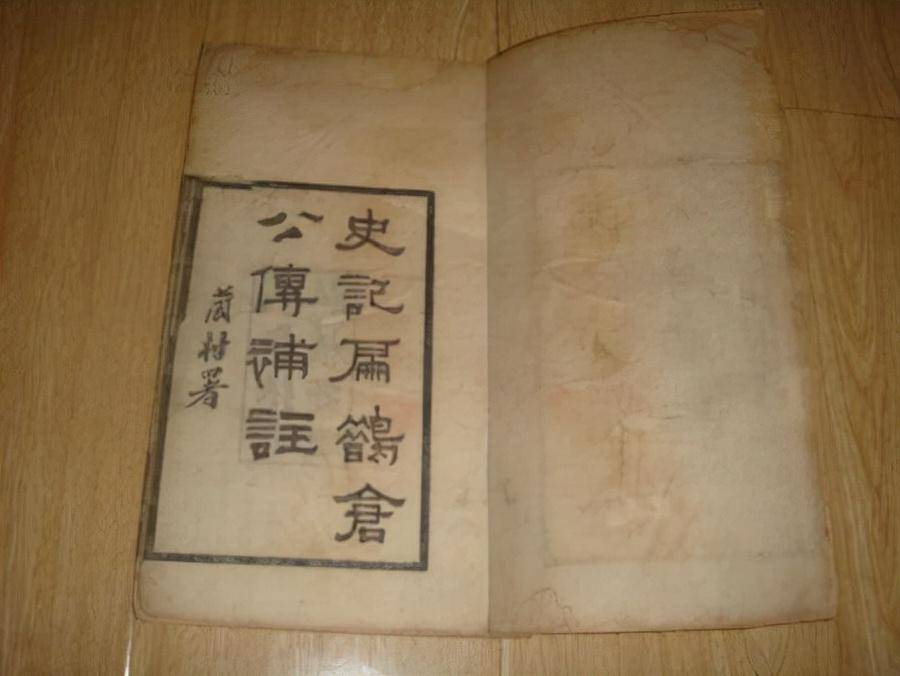 史記扁鵲倉
公傳補註
村署